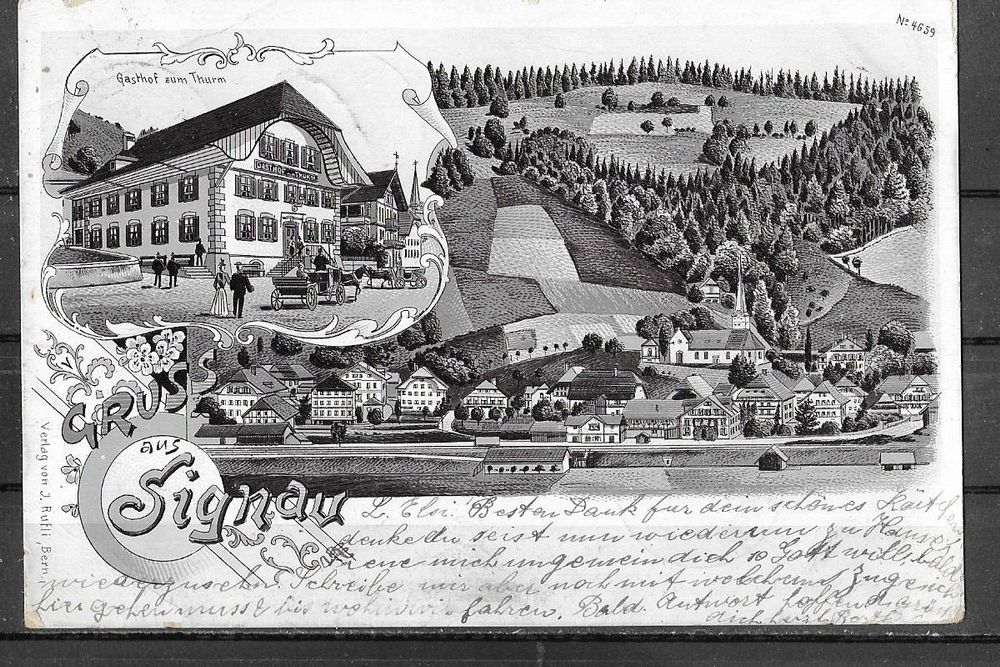 No 4659
Gasthof zum Thurm
GASTHOF THURM
GRUSS
aus
Signau
Verlag von J. Rüfli, Bern.
L. Elsi! Besten Dank für dein schönes Kärtchen
denke du seist nun wiederum zu Hause,
freue mich ungemein dich so Gott will, bald
wiederzusehn. Schreibe mir aber noch mit welchem Zug ich
hier gehen muss & bis wohin wir fahren. Bald. Antwort hoffend
dich herzl.